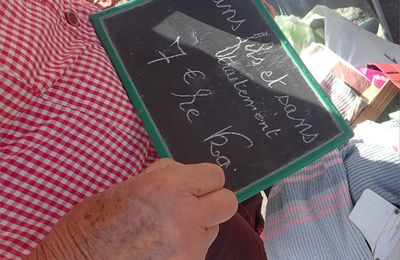 sans fils et sans
traitement
7 € le Kg.